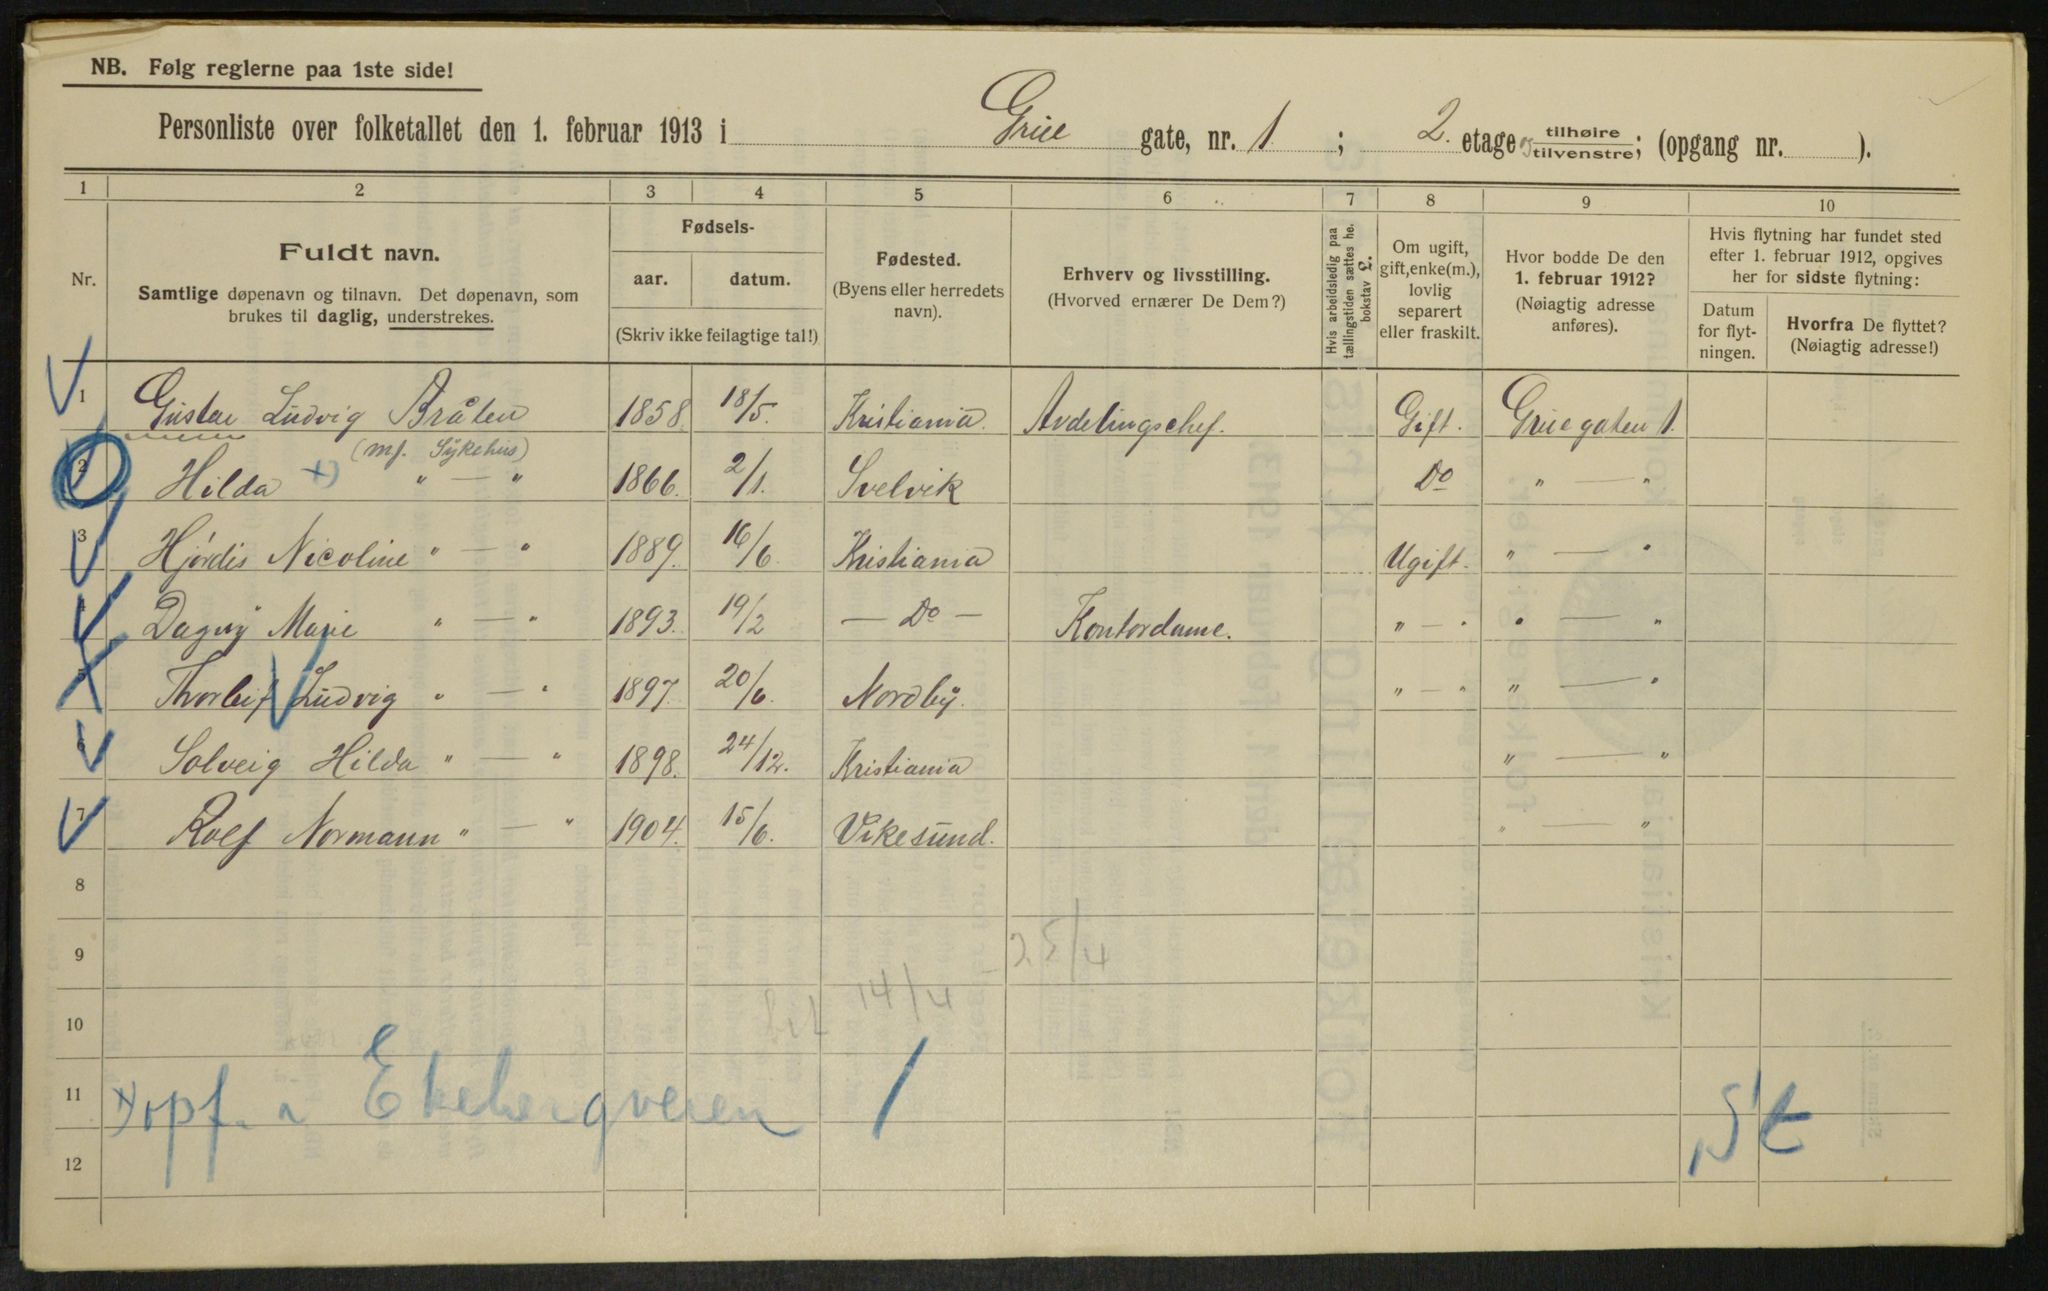 NB. Følg reglerne paa 1ste side!
Personliste over folketallet den 1. februar 1913 i Grüe gate, nr. 1 ; 2. etage tilhøire tilvenstre; (opgang nr. ).
1 2 3 4 5 6 7 8 9 10
Nr.
Fuldt navn.
Samtlige døpenavn og tilnavn. Det døpenavn, som
brukes til daglig, understrekes.
Fødsels-
aar. datum.
(Skriv ikke feilagtige tal!)
Fødested.
(Byens eller herredets
navn).
Erhverv og livsstilling.
(Hvorved ernærer De Dem?)
Hvis arbeidsledig paa
tællingstiden sættes he.
bokstav L.
Om ugift,
gift, enke(m.),
lovlig
separert
eller fraskilt.
Hvor bodde De den
1. februar 1912?
(Nøiagtig adresse
anføres).
Hvis flytning har fundet sted
efter 1. februar 1912, opgives
her for sidste flytning:
Datum
for flyt-
ningen.
Hvorfra De flyttet?
(Nøiagtig adresse!)
1 Gustav Ludvig Bråten 1858. 18/5. Kristiania. Avdelingschef. Gift. Grüegaten 1.
(mf. Sykehus)
2 Hilda x) " — " 1866. 2/1. Svelvik Do " — "
3 Hjördis Nicoline " — " 1889. 16/6. Kristiania Ugift. " — "
4 Dagny Marie " — " 1893. 19/2 — Do — Kontordame. " — " " — "
5 Thorleif Ludvig " — " 1897. 20/6. Nordby. " — " " — "
6 Solveig Hilda " — " 1898. 24/12. Kristiania " — "
7 Rolf Normann " — " 1904. 15/6. Vikesund. " — "
8
9 25/4
10 14/4
11 x) opf. i Ekebergveien /
12